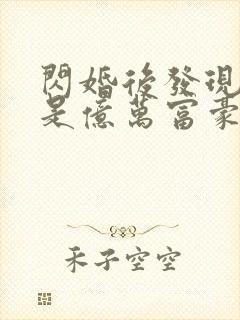 閃婚後發現
是億萬富豪
禾子空空